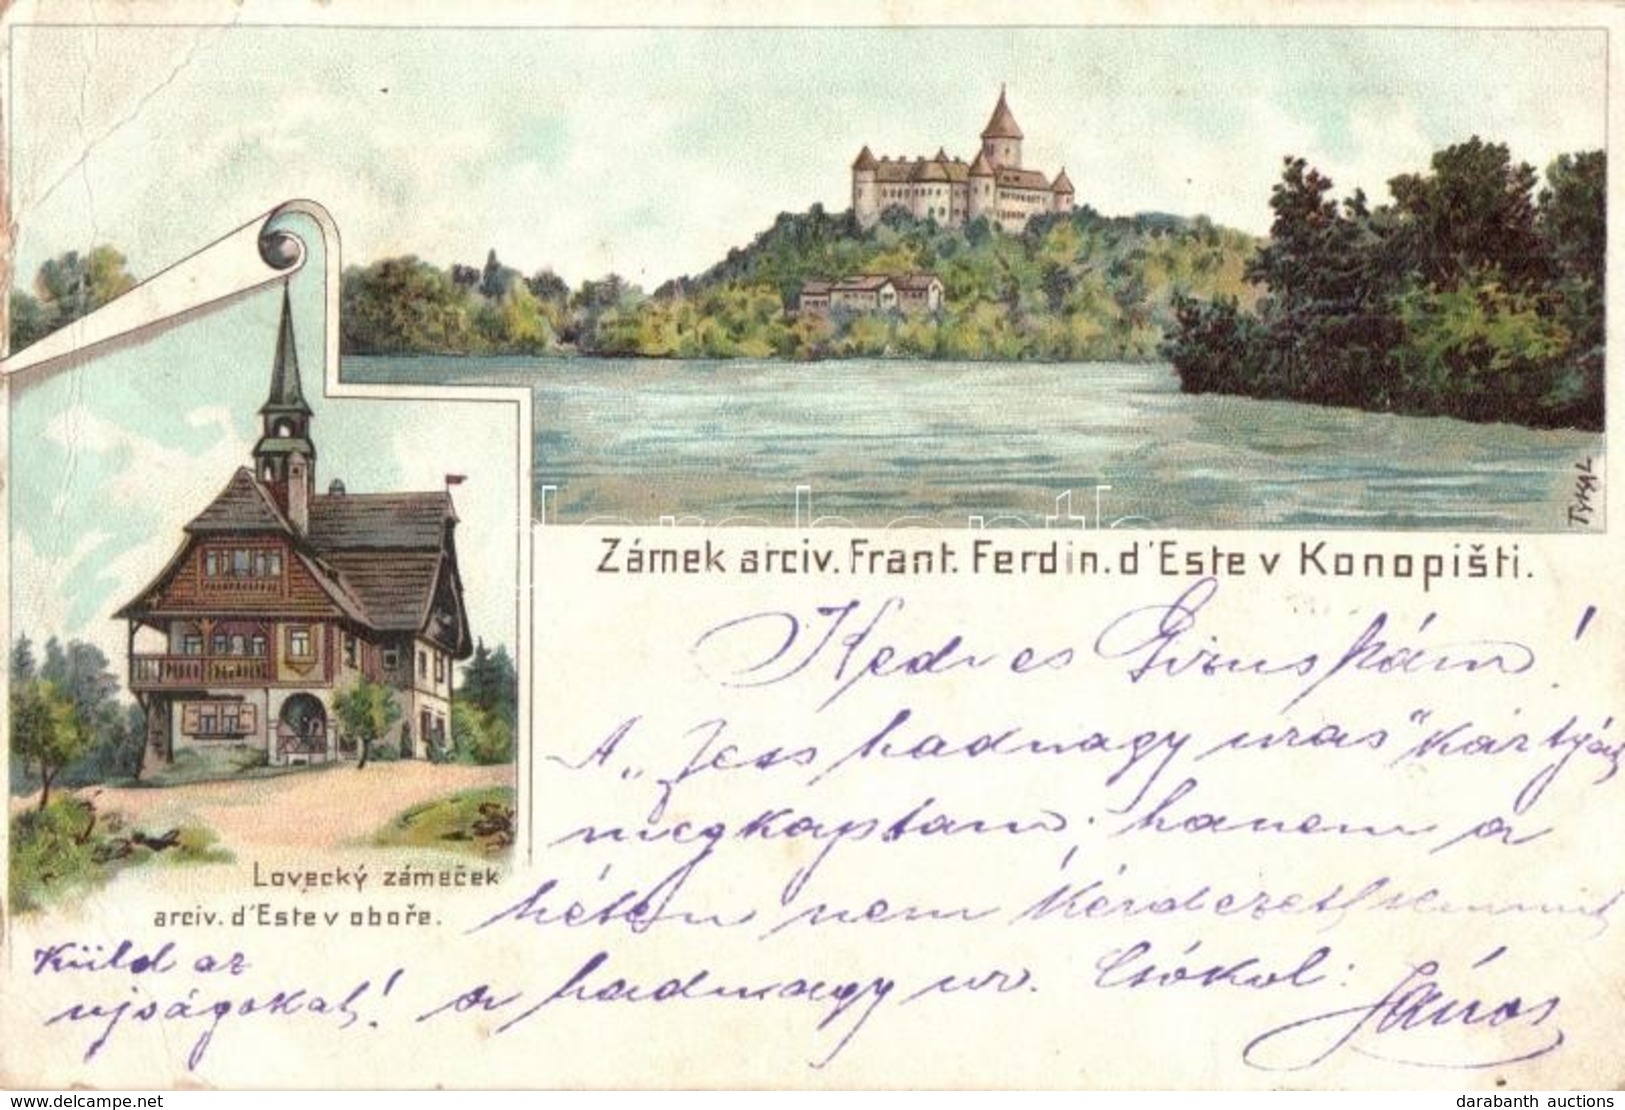 TYKAL
darabanth
Zámek arciv. Frant. Ferdin. d'Este v Konopišti.
Lovecký zámeček
arciv. d'Este v oboře.
Kedves Gizuskám!
A „Jess hadnagy uras" kártyát
megkaptam; hanem a
héten nem kérdezett semmit
a hadnagy ur. Csókol:
János
Küld az
ujságokat!
www.delcampe.net
darabanth auctions